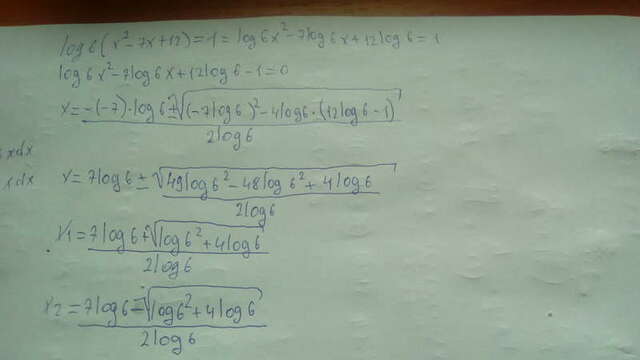 log6(x²-7x+12)=1=log6x²-7log6x+12log6=1
log6x²-7log6x+12log6-1=0
x=-(-7)·log6±√(-7log6)²-4log6·(12log6-1)
2log6
xdx
xdx
x=7log6±√49log6²-48log6²+4log6
2log6
x1=7log6+√log6²+4log6
2log6
x2=7log6-√log6²+4log6
2log6